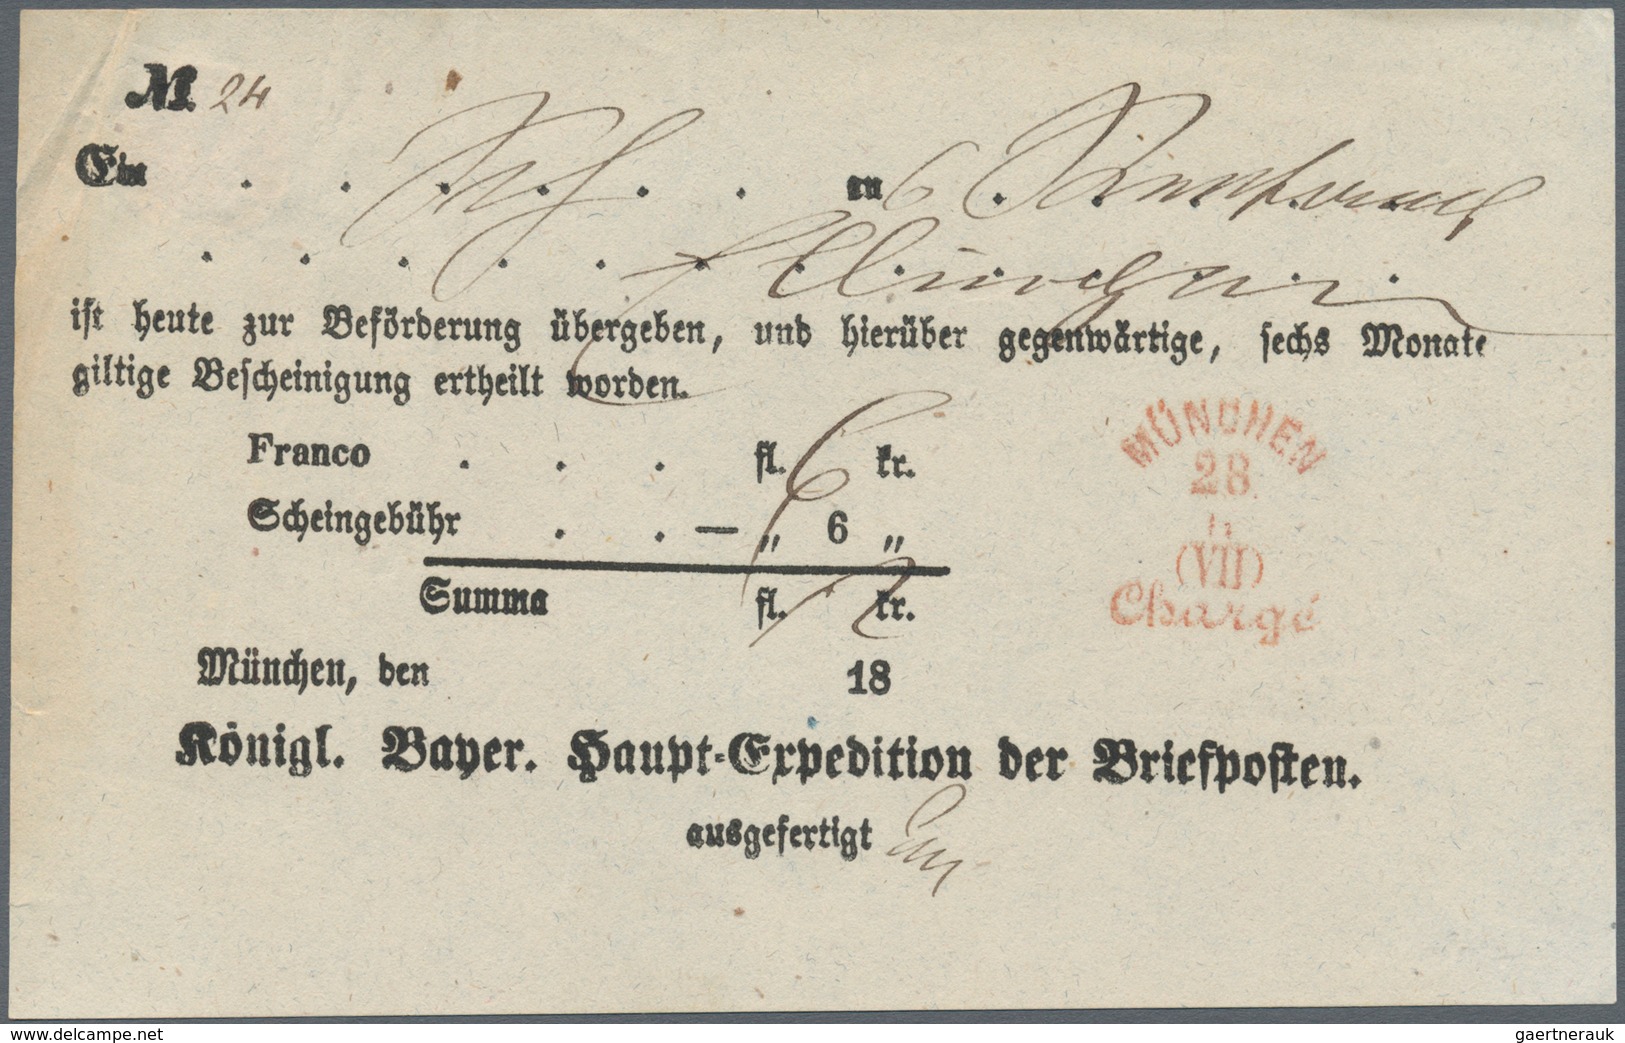 № 24
Ein . . . . . . an . . . . .
ist heute zur Beförderung übergeben, und hierüber gegenwärtige, sechs Monate
giltige Bescheinigung ertheilt worden.
Franco . . . fl. 6 kr.
Scheingebühr . . — „ 6 „
Summa fl. 12 kr.
MÜNCHEN
28
(VII)
Chargé
München, den 18
Königl. Bayer. Haupt-Expedition der Briefposten.
ausgefertigt
www.delcampe.net
gaertnerauk